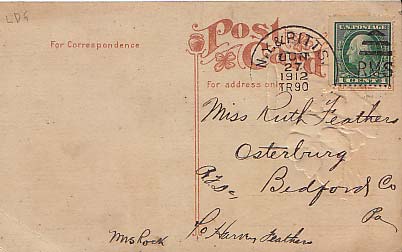 LDS
Post Card
For Correspondence
For address only
N.Y. & PITTS.
JUN
27
1912
TR 90
U.S. POSTAGE
1 CENT 1
R.M.S
Miss Ruth Feathers
Osterburg
Bedford Co
Pa
℅ Harvey Feathers
Mrs Rock